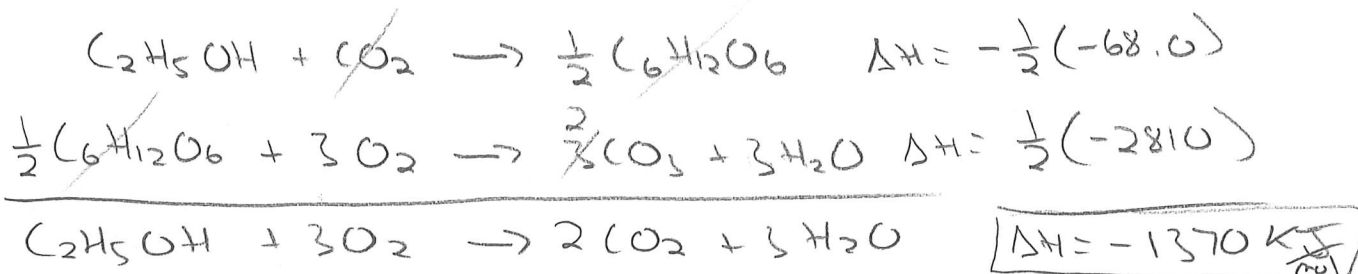 C₂H₅OH + CO₂ → ½ C₆H₁₂O₆ ΔH = -½(-68.0)
½ C₆H₁₂O₆ + 3O₂ → 2 3CO₃ + 3H₂O ΔH = ½(-2810)
C₂H₅OH + 3O₂ → 2CO₂ + 3H₂O ΔH = -1370 KJ mol